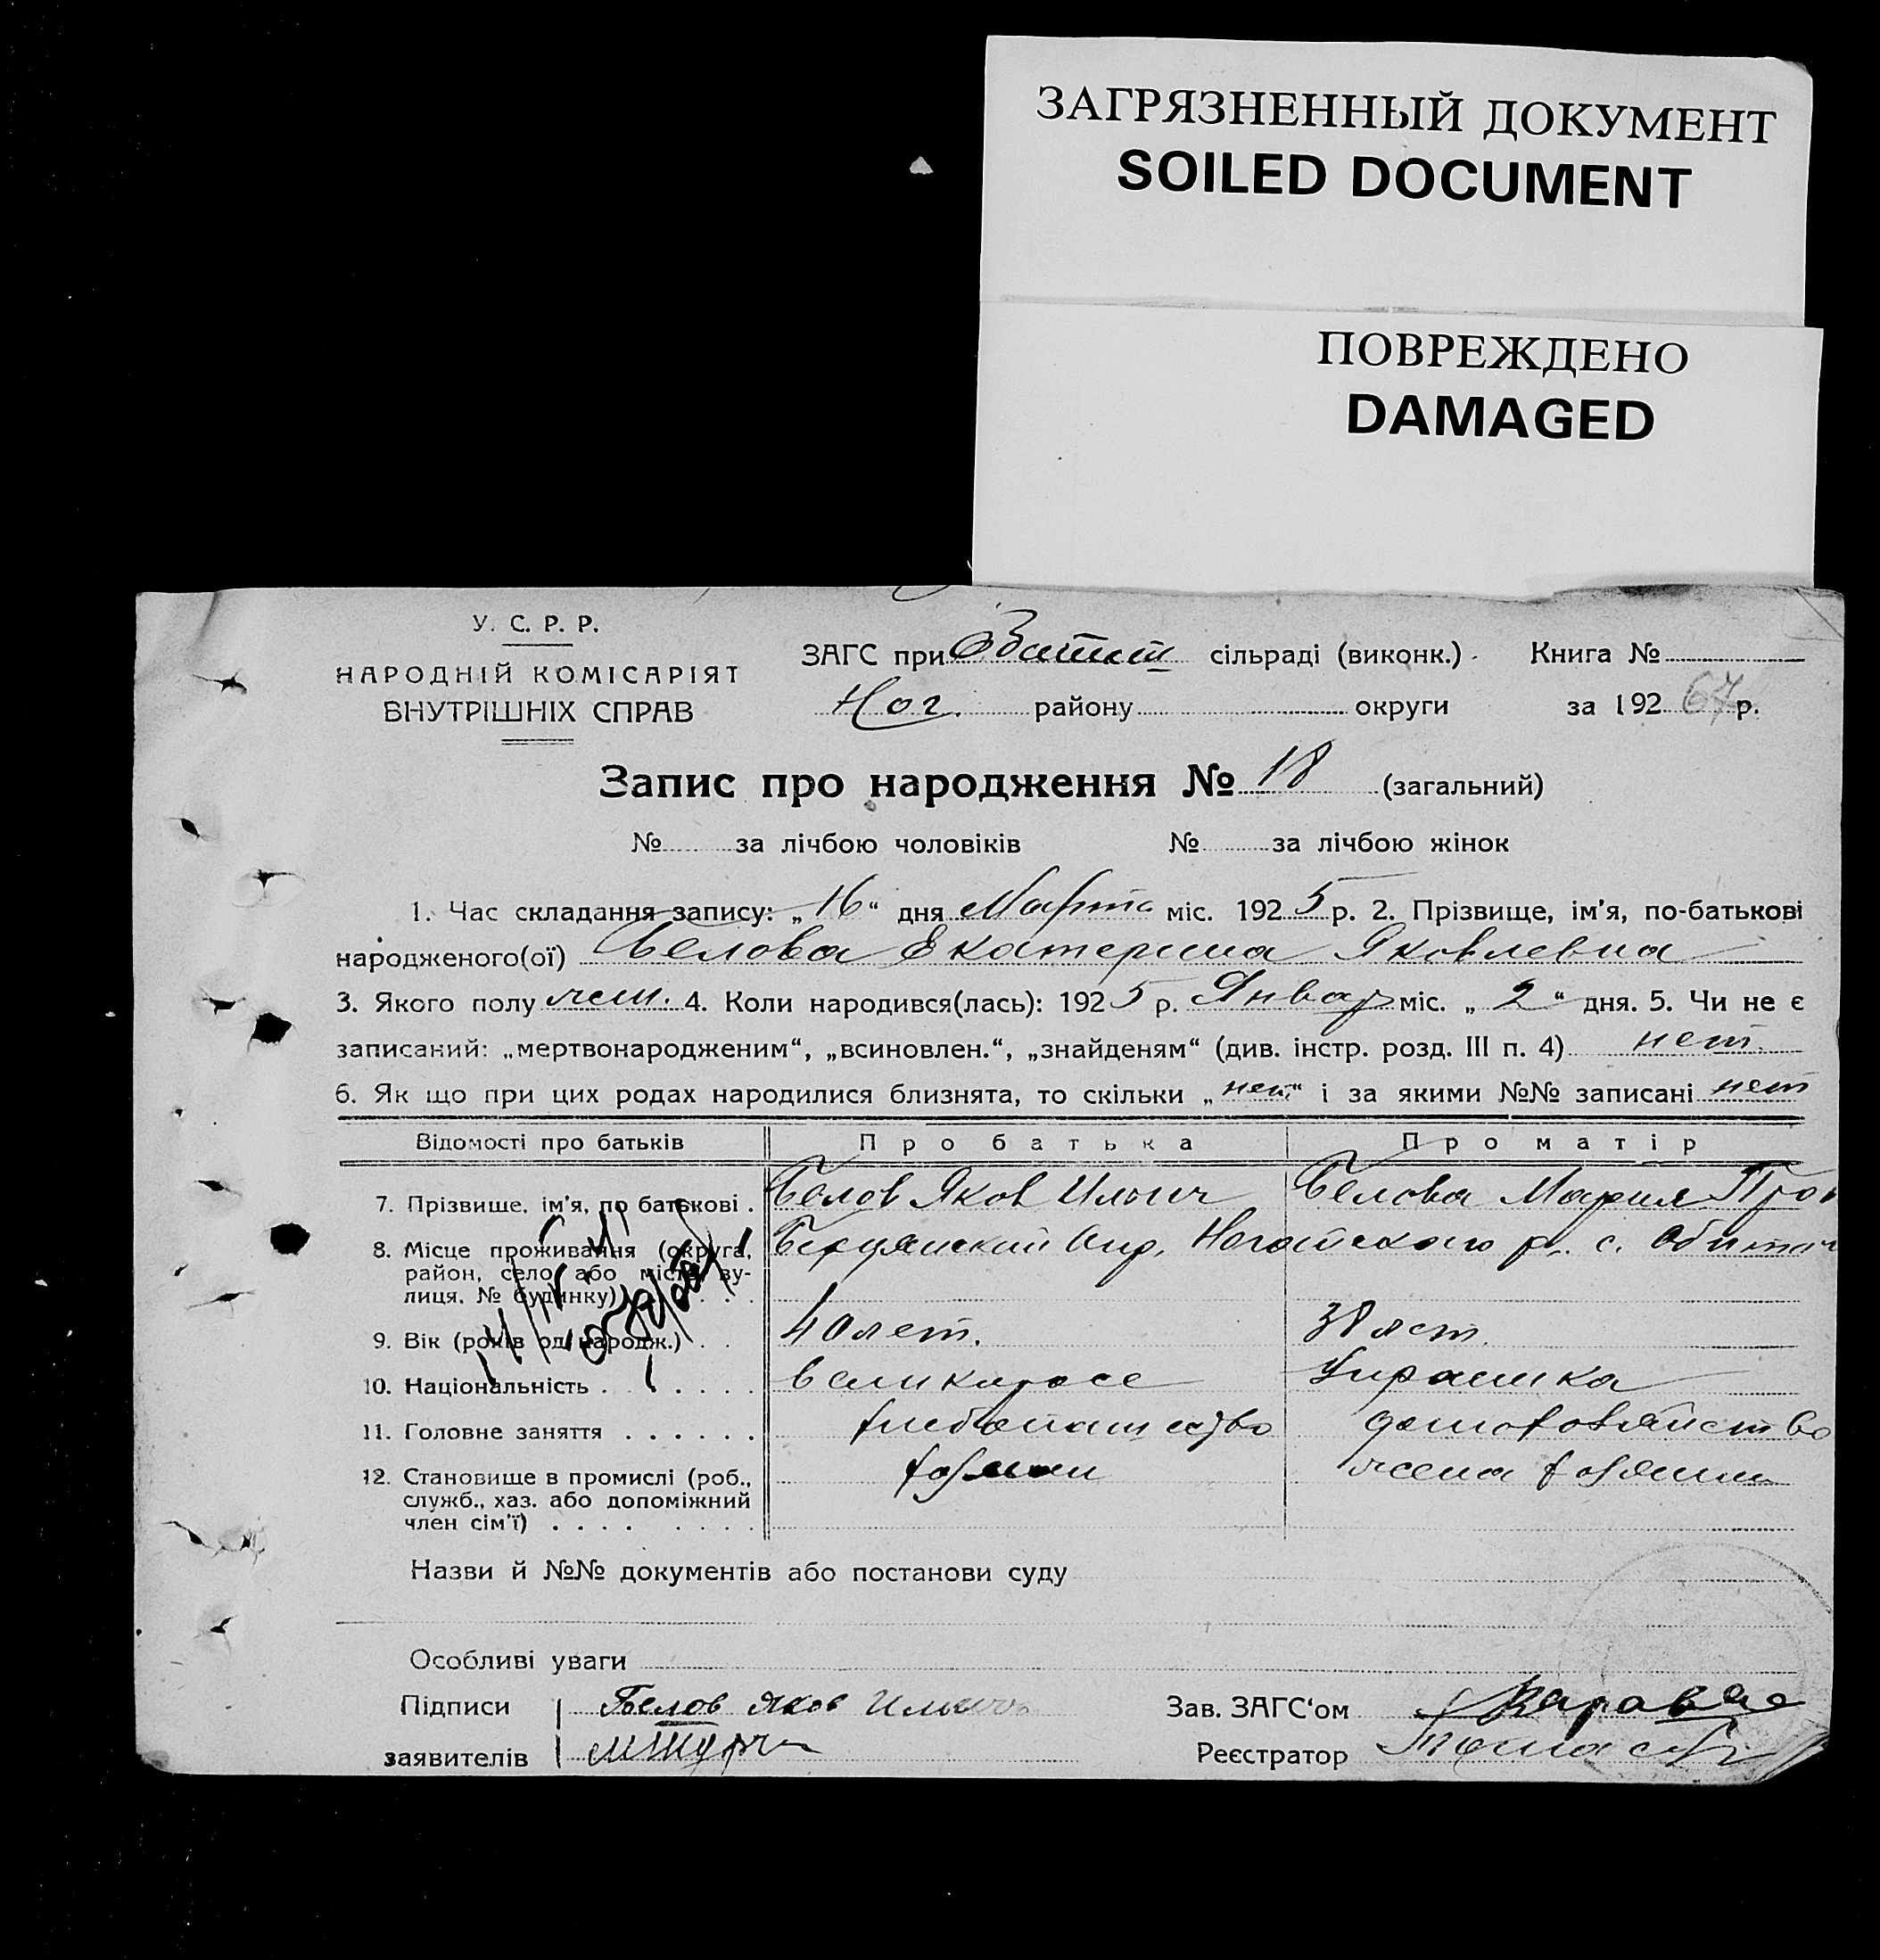 ЗАГРЯЗНЕННЫЙ ДОКУМЕНТ
SOILED DOCUMENT
ПОВРЕЖДЕНО
DAMAGED
У. С. Р. Р.
НАРОДНІЙ КОМІСАРІЯТ
ВНУТРІШНІХ СПРАВ
ЗАГС при сільраді (виконк.) Книга №
Ног. району округи за 192 р.
Запис про народження № 18 (загальний)
№ за лічбою чоловіків № за лічбою жінок
1. Час складання запису: „16“ дня Марта міс. 1925 р. 2. Прізвище, ім'я, по-батькові
народженого(ої) Белова Екатерина Яковлевна
3. Якого полу жен. 4. Коли народився(лась): 1925 р. Январ міс. „2“ дня. 5. Чи не є
записаний: „мертвонародженим“, „всиновлен.“, „знайденям“ (див. інстр. розд. III п. 4) нет.
6. Як що при цих родах народилися близнята, то скільки „нет“ і за якими №№ записані нет
Відомості про батьків Про батька Про матір
7. Прізвише, ім'я, по батькові . Белов Яков Ильич Белова Мария
8. Місце проживання (округа, район, село або місто, вулиця, № будинку) Бердянский Окр. Ногайского р. с.
9. Вік (років од народж.) . . 40 лет. 38 лет.
10. Національність . . . . . . великоросс Украинка
11. Головне заняття . . . . . . домохозяйство
12. Становище в промислі (роб., служб., хаз. або допоміжний член сім'ї) . . . . хозяин жена хозяина
Назви й №№ документів або постанови суду
Особливі уваги
Підписи Белов Яков
заявителів
Зав. ЗАГС'ом
Реєстратор